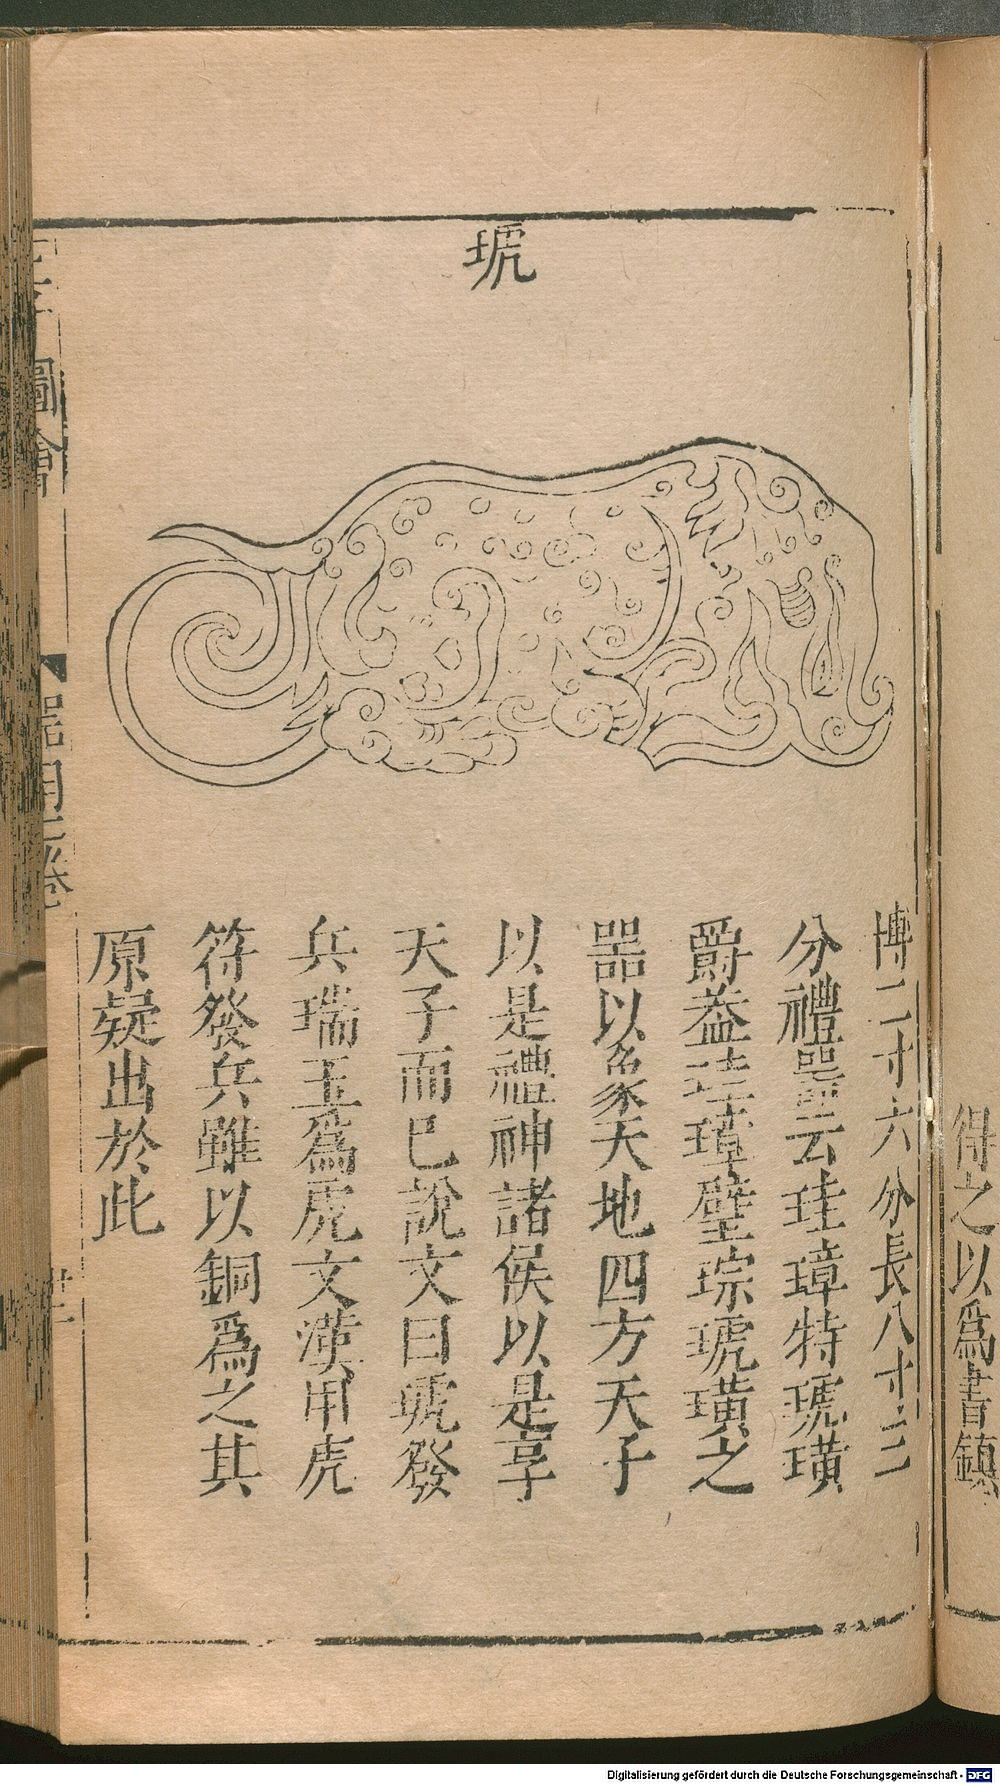 得之以爲書鎮
琥
博二寸六分長八寸三
分禮器云珪璋特琥璜
爵葢珪璋璧琮琥璜之
器以象天地四方天子
以是禮神諸侯以是享
天子而巳說文曰琥發
兵瑞玉爲虎文漢用虎
符發兵雖以銅爲之其
原疑出於此
圖會
器用二卷
Digitalisierung gefördert durch die Deutsche Forschungsgemeinschaft - DFG